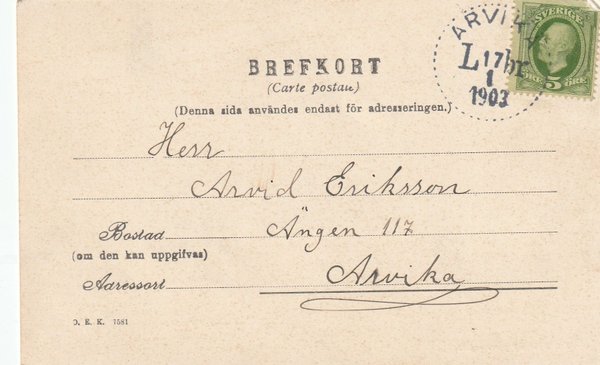 ARVIKA
L 17 br
1
1903
SVERIGE
5 ÖRE
BREFKORT
(Carte postau)
(Denna sida användes endast för adresseringen.)
Herr
Arvid Eriksson
Bostad Ängen 117
(om den kan uppgifvas)
Adressort Arvika
D. E. K. 1581